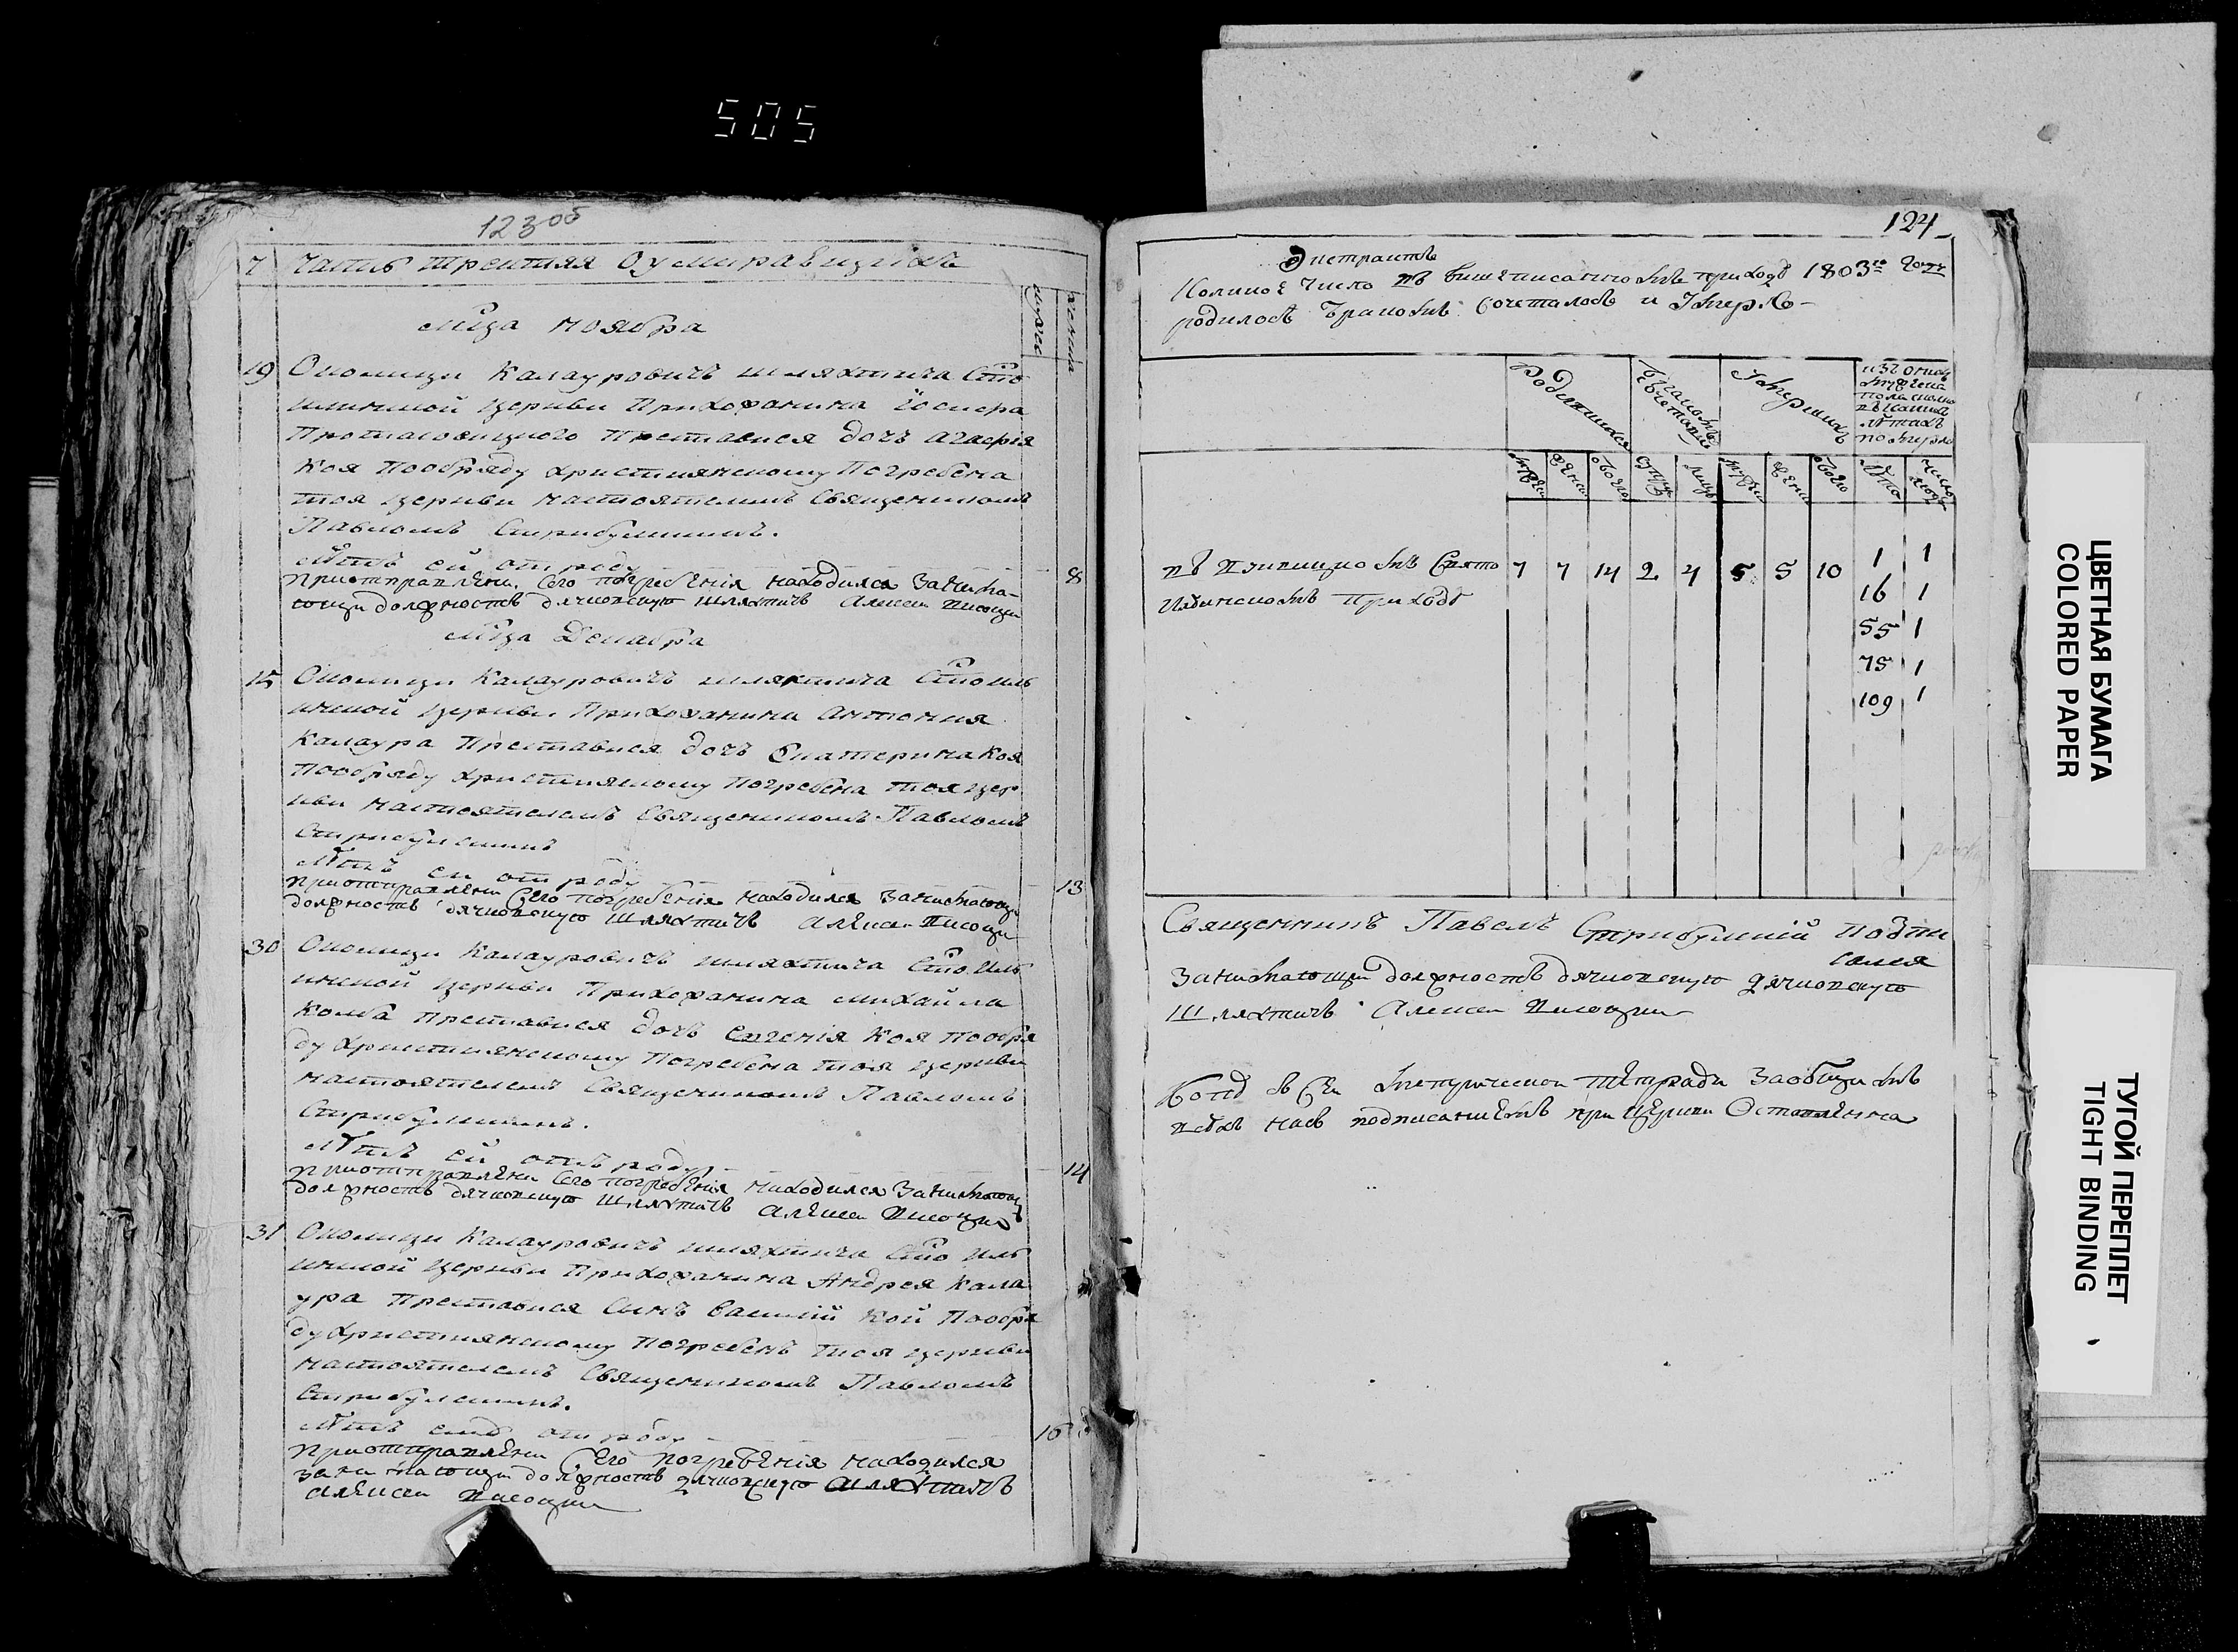 505
123об
7 Часть третияя О умиравщихъ
мужеска
женска
Мца ноября
19 Околици Калауровичъ шляхтича Сто
илинской церкви Прихожанина Иосифа
Протасовицкого Преставися дочъ Агафия
коя пообряду християнскому Погребена
тоя церкви настоятелемъ Священикомъ
Павломъ Стрибулскимъ.
Лѣтъ ей отроду 8
приотправлени сего погребения находился Занима
ющи должность дячковскую шляхтичъ Алексеи
Мца Декабра
15 Околици Калауровичъ шляхтича Сто Иль
инской церкви Прихожанина Антония
Калаура Преставися дочъ Екатерина коя
пообряду християнскому погребена тоя цер
кви настоятелемъ Священикомъ Павломъ
Стрибулскимъ
Лѣтъ еи отроду 13
приотправлени Сего погребения находился Занимающи
должность дячковскую шляхтичъ Алексеи
30 Околици Калауровичъ шляхтича Сто Иль
инской церкви Прихожанина Михайла
Колба Преставися дочъ Евгения коя пообря
ду Християнскому Погребена тоя церкви
настоятелемъ Священикомъ Павломъ
Стрибулскимъ.
Лѣтъ ей отъ роду 14
приотправлени Сего погребения находился Занимающи
должность дячковскую шляхтичъ Алексеи
31 Околици Калауровичъ шляхтича Сто Иль
инской церкви Прихожанина Андрея Кала
ура Преставися Сынъ Василий кой Пообря
ду християнскому погребенъ тоя церкви
настоятелемъ Священикомъ Павломъ
Стрибулскимъ.
Лѣтъ ему отроду 16
приотправлени Сего погребения находился
занимающи должность дячковскую шляхтичъ
Алексеи
124
Экстрактъ
Количое число въ вишеписанномъ приходѣ 1803го году
родилось Браковъ Сочеталось и Умерло
Родившихся
Браковъ сочетание
Умершихъ
мужеска
женска
обоего
мужеска
женска
обоего
лѣто
число
въ Свято 7 7 14 2 4 5 5 10 1 1
Илинскомъ приходѣ 16 1
55 1
75 1
109 1
Священникъ Павелъ Стрибулский подпи
сался
Занимающи должность дячковскую дячковскую
Шляхтичъ Алексеи
Копѣя Сеи метрическои тетради Заобщимъ
всѣхъ насъ подписаниемъ при церкви Оставленна
ЦВЕТНАЯ БУМАГА
COLORED PAPER
ТУГОЙ ПЕРЕПЛЕТ
TIGHT BINDING